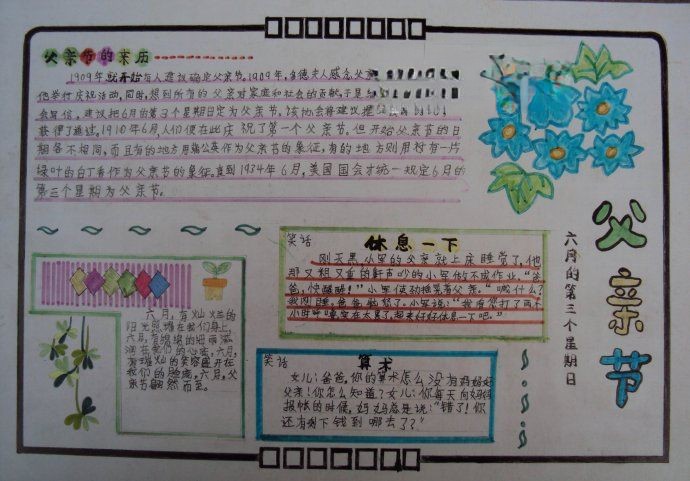 父亲节的来历
1909年就开始有人建议确定父亲节。1909年，多德夫人感念父亲
他举行庆祝活动，同时，想到所有的父亲对家庭和社会的贡献，于是
会写信，建议把6月的第3个星期日定为父亲节。该协会将建议提
获得了通过。1910年6月，人们便在此庆祝了第一个父亲节。但开始父亲节的日
期各不相同，而且有的地方用蒲公英作为父亲节的象征，有的地方则用衬有一片
绿叶的白丁香作为父亲节的象征。直到1934年6月，美国国会才统一规定6月的
第三个星期为父亲节。
父亲节
六月的第三个星期日
笑话 休息一下
刚天黑，小军的父亲就上床睡觉了，他
那又粗又重的鼾声吵的小军做不成作业。“爸
爸，快醒醒！”小军使劲摇晃着父亲。“喊什么？
我刚睡，爸爸恼怒了。小军说：“我看您打了两个
小时呼噜实在太累了，起来好好休息一下吧。”
六月，有灿烂的
阳光照耀在我们身上，
六月，有绵绵的细雨滋
润在我们的心底，六月，
有璀灿的笑容盛开在
我们的脸庞，六月，父
亲节翩然而至。
笑话 算术
女儿：爸爸，你的算术怎么没有妈妈好
父亲！你怎么知道？女儿：你每天向妈妈
报帐的时候，妈妈总是说：“错了！你
还有剩下钱到哪去了？”